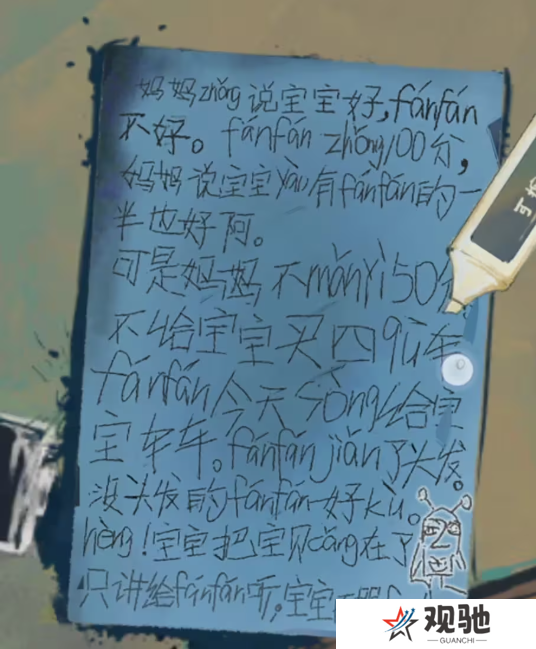 妈妈zhǒng说宝宝好,fánfán
不好。fánfán zhǒng100分,
妈妈说宝宝yàu有fánfán的一
半也好阿。
可是妈妈不mǎnyì50分
不给宝宝买四qū车
fánfán今天sòng给宝
宝车车。fánfán jiǎn了头发。
没头发的fánfán好kù。
hèng!宝宝把宝贝cáng在了
只讲给fánfán听,宝宝
观驰
GUANCHI